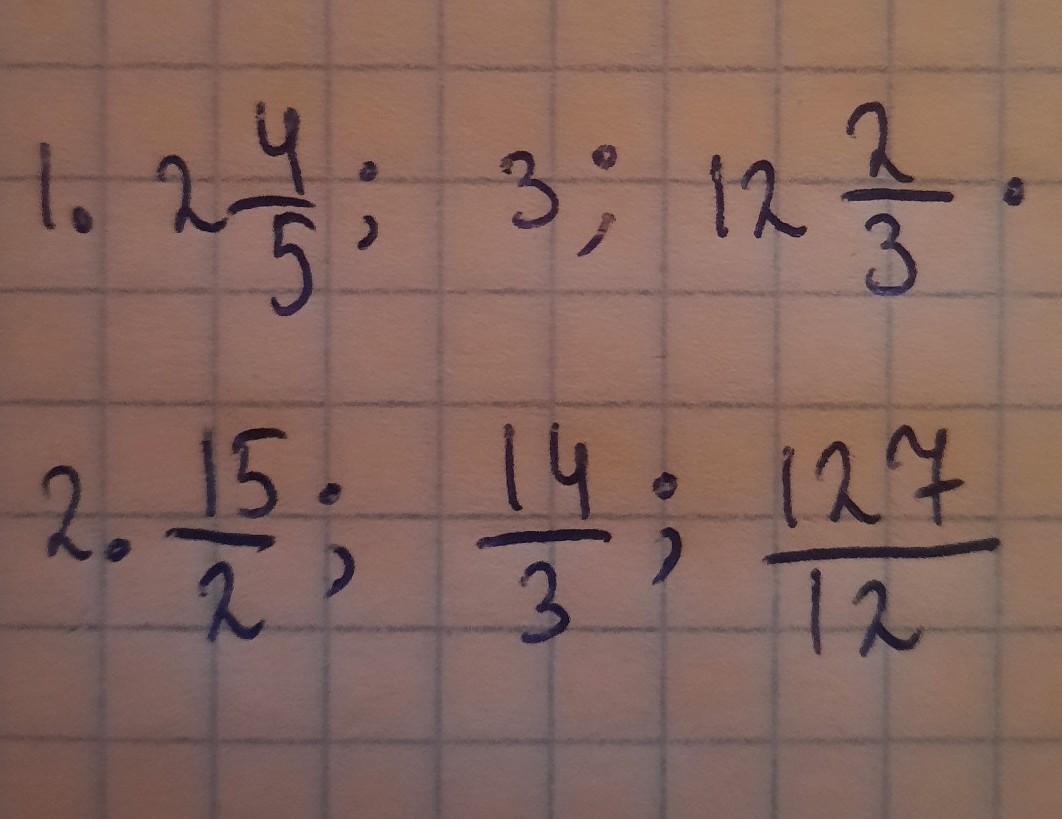 1. 2 4/5; 3; 12 2/3.
2. 15/2; 14/3; 127/12